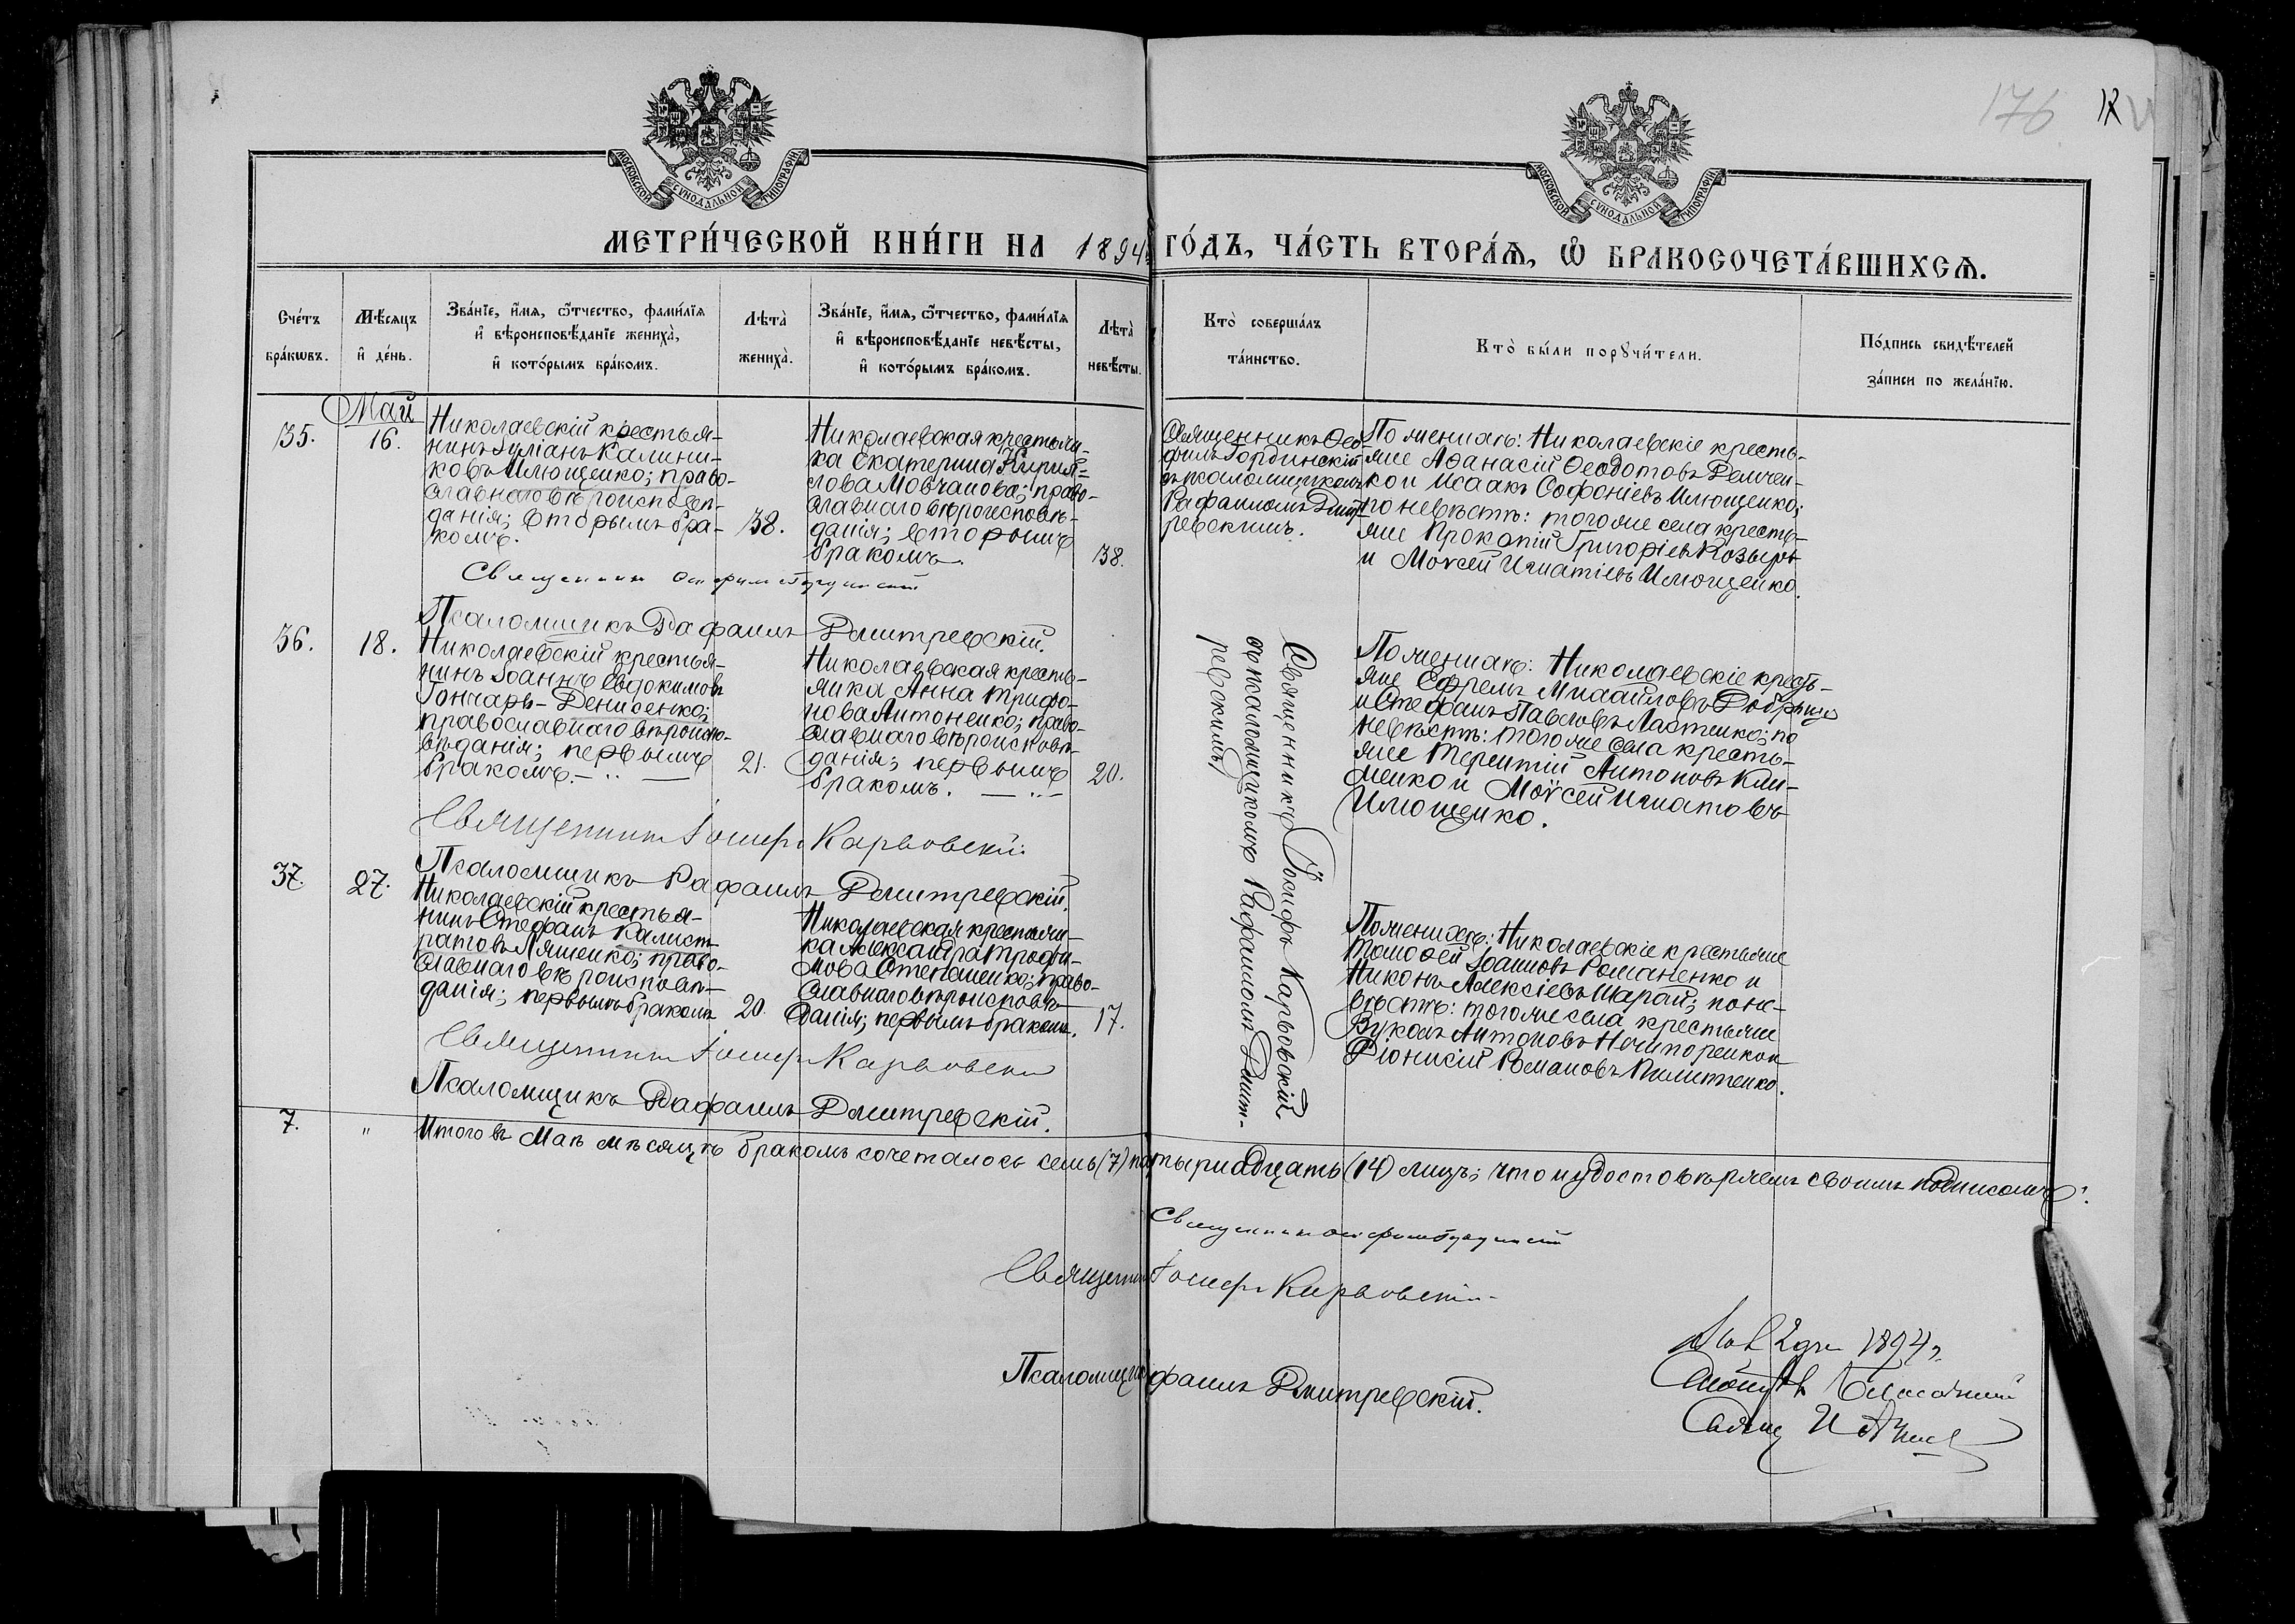 176
МОСКОВСКОЙ СѴНОДАЛЬНОЙ ТИПОГРАФІИ
МОСКОВСКОЙ СѴНОДАЛЬНОЙ ТИПОГРАФІИ
МЕТРИ́ЧЕСКОЙ КНИ́ГИ НА 1894 ГО́ДЪ, ЧА́СТЬ ВТОРА́Ѧ, Ѽ БРАКОСОЧЕТА́ВШИХСѦ.
Сче́тъ
бра́кѡвъ.
Мѣ́сяцъ
и҆ де́нь.
Зва́нїе, и҆́мѧ, ѻ҆́тчество, фами́лїѧ
и҆ вѣроисповѣ́данїе жениха̀,
и҆ кото́рымъ бра́комъ.
Лѣта̀
жениха̀.
Зва́нїе, и҆́мѧ, ѻ҆́тчество, фами́лїѧ
и҆ вѣроисповѣ́данїе невѣ́сты,
и҆ кото́рымъ бра́комъ.
Лѣта̀
невѣ́сты.
Кто̀ соверша́лъ
та́инство.
Кто̀ бы́ли порꙋчи́тели.
По́дпись свидѣ́телей
за́писи по жела́нїю.
Май
35.
16.
Николаевскій крестья-
нинъ Іуліанъ Калини-
ковъ Илющенко; право-
славнаго вѣроисповѣ-
данія; вторымъ бра-
комъ.
38.
Николаевская крестьян-
ка Екатерина Кирил-
лова Мовчанова; право-
славнаго вѣроисповѣ-
данія; вторымъ
бракомъ.
38.
Священникъ Ѳео-
филъ Гординскій
съ псаломщикомъ
Рафаиломъ Дмит-
ревскимъ.
По женихѣ: Николаевскіе кресть-
яне Аѳанасій Ѳеодотовъ Демчен-
ко и Исаакъ Софоніевъ Илющенко;
по невѣстѣ: того же села кресть-
яне Прокопій Григоріевъ Козырь
и Моѵсей Игнатіевъ Илющенко.
Священникъ
Псаломщикъ Рафаилъ Дмитревскій.
36.
18.
Николаевскій крестья-
нинъ Іоаннъ Евдокимовъ
Гончаръ-Денисенко;
православнаго вѣроиспо-
вѣданія; первымъ
бракомъ.
21.
Николаевская кресть-
янка Анна Трифо-
нова Антоненко; право-
славнаго вѣроисповѣ-
данія; первымъ
бракомъ.
20.
Священникъ Іосифъ Карвовскій
съ псаломщикомъ Рафаиломъ Дмит-
ревскимъ
По женихѣ: Николаевскіе кресть-
яне Ефремъ Михайловъ
и Стефанъ Павловъ Ластенко; по
невѣстѣ: того же села кресть-
яне Терентій Антоновъ Кли-
менко и Моѵсей Игнатовъ
Илющенко.
Священникъ Іосифъ Карвовскій
Псаломщикъ Рафаилъ Дмитревскій.
37.
27.
Николаевскій крестья-
нинъ Стефанъ Калист-
ратовъ Ляшенко; право-
славнаго вѣроисповѣ-
данія; первымъ бракомъ
20.
Николаевская крестьян-
ка Александра Трофи-
мова Степаненко; право-
славнаго вѣроисповѣ-
данія; первымъ бракомъ.
17.
По женихѣ: Николаевскіе крестьяне
Тимоѳей Іоанновъ Романенко и
Никонъ Алексіевъ Шарай; по не-
вѣстѣ: того же села крестьяне
Вуколъ Антоновъ Ничипоренко и
Діонисій Романовъ Пилипенко.
Священникъ Іосифъ Карвовскій
Псаломщикъ Рафаилъ Дмитревскій.
7.
"
Итого въ Маѣ мѣсяцѣ бракомъ сочеталось семь (7) четырнадцать (14) лицъ; что и удостовѣряемъ своимъ подписомъ:
Священникъ
Священникъ Іосифъ Карвовскій
Псаломщикъ Рафаилъ Дмитревскій.
1894 г.